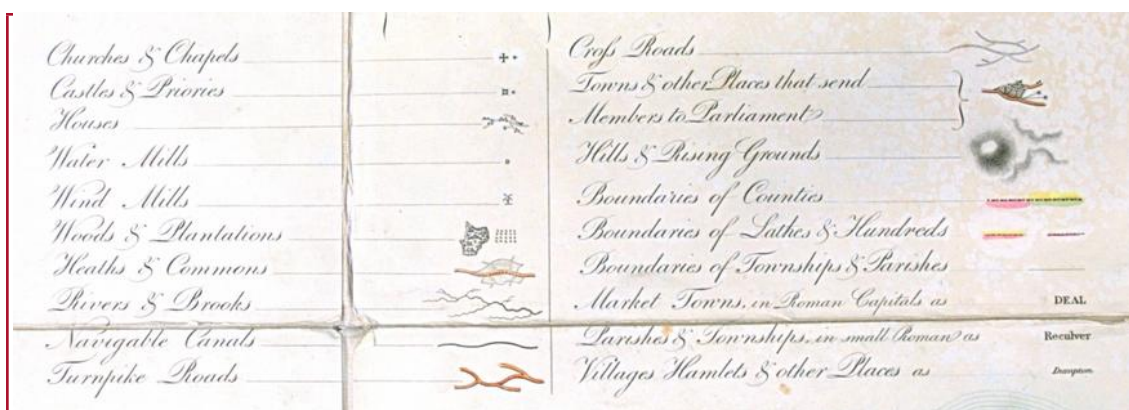 Churches & Chapels
Castles & Priories
Houses
Water Mills
Wind Mills
Woods & Plantations
Heaths & Commons
Rivers & Brooks
Navigable Canals
Turnpike Roads
Croſs Roads
Towns & other Places that send
Members to Parliament
Hills & Rising Grounds
Boundaries of Counties
Boundaries of Lathes & Hundreds
Boundaries of Townships & Parishes
Market Towns, in Roman Capitals as DEAL
Parishes & Townships, in small Roman as Reculver
Villages Hamlets & other Places as